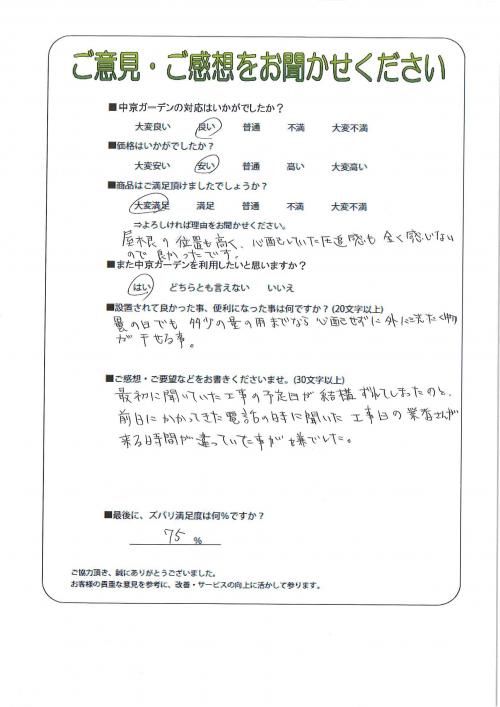 ご意見・ご感想をお聞かせください
■中京ガーデンの対応はいかがでしたか？
大変良い 良い 普通 不満 大変不満
■価格はいかがでしたか？
大変安い 安い 普通 高い 大変高い
■商品はご満足頂けましたでしょうか？
大変満足 満足 普通 不満 大変不満
⇒よろしければ理由をお聞かせください。
屋根の位置も高く、心配していた圧迫感も全く感じない
ので良かったです。
■また中京ガーデンを利用したいと思いますか？
はい どちらとも言えない いいえ
■設置されて良かった事、便利になった事は何ですか？(20文字以上)
曇の日でも 多少の量の雨までなら 心配せずに外に洗たく物
が干せる事。
■ご感想・ご要望などをお書きくださいませ。(30文字以上)
最初に聞いていた工事の予定日が結構ずれてしまったのと、
前日にかかってきた電話の時に聞いた工事日の業者さんが
来る時間が違っていた事が嫌でした。
■最後に、ズバリ満足度は何%ですか？
75 %
ご協力頂き、誠にありがとうございました。
お客様の貴重な意見を参考に、改善・サービスの向上に活かして参ります。